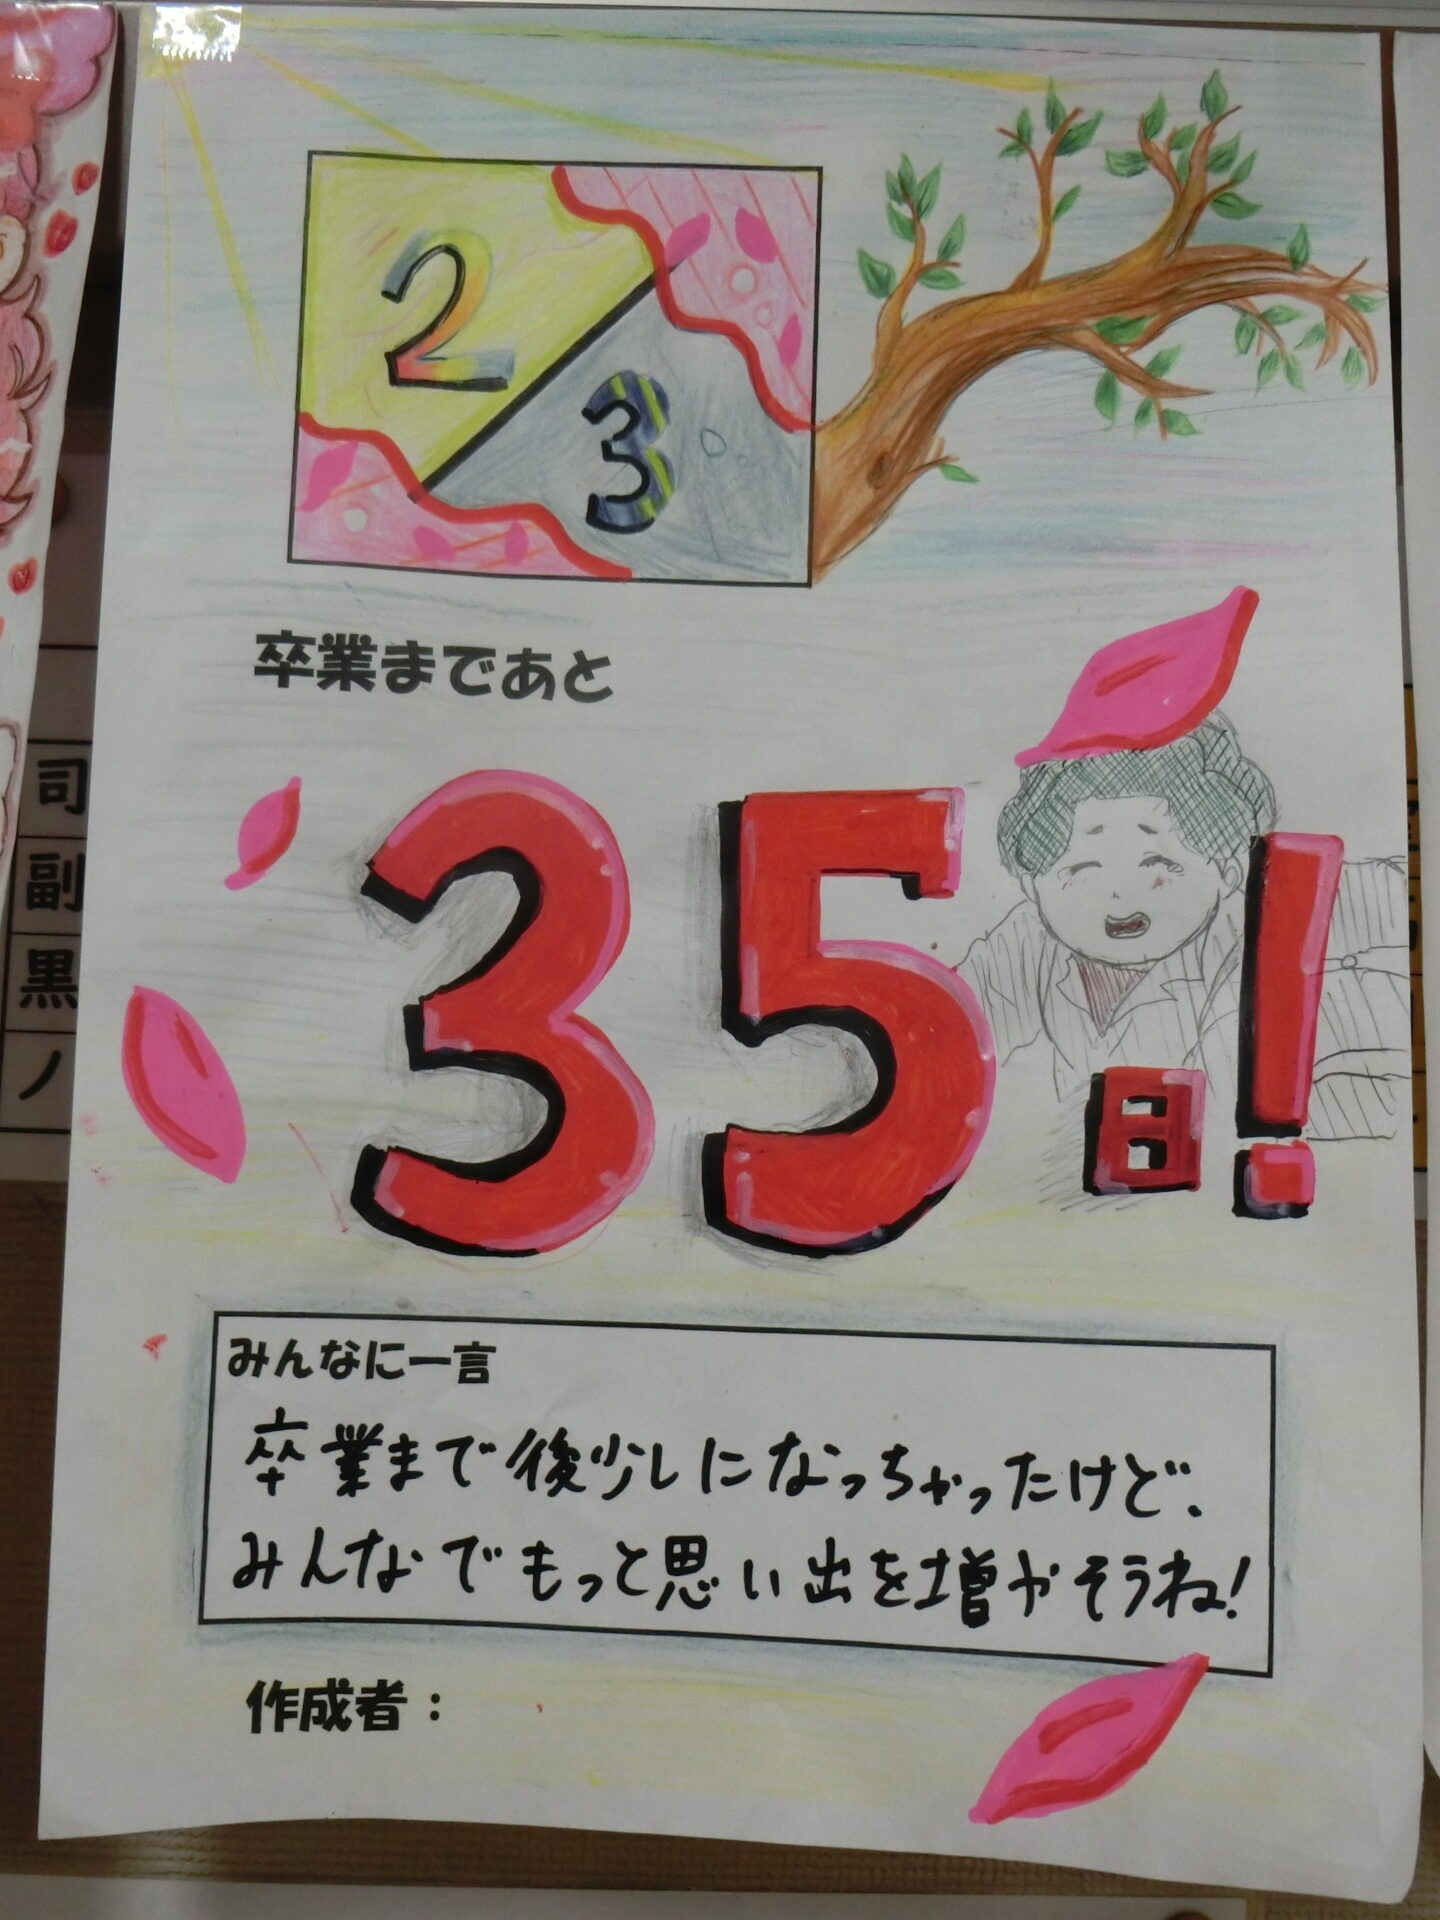 2
3
卒業まであと
35日!
みんなに一言
卒業まで後少しになっちゃったけど、
みんなでもっと思い出を増やそうね!
作成者：
司
副
黒
ノ